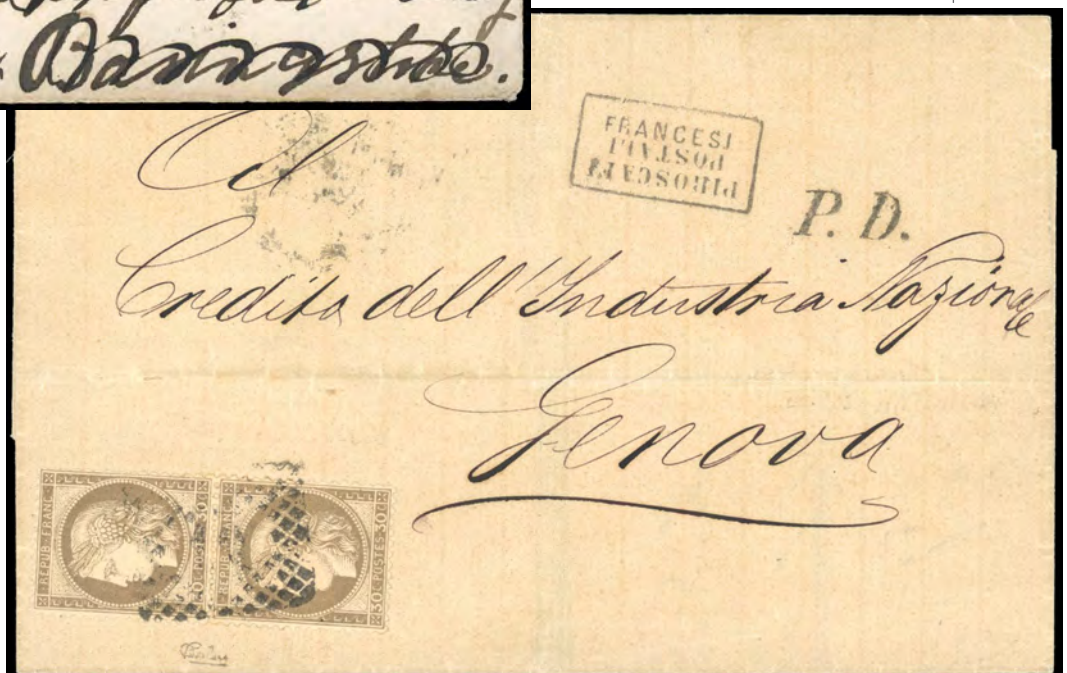 FRANCESI
POSTALI
PIROSCAFI
P. D.
Al
Credito dell' Industria Nazionale
Genova
REPUB. FRANC.
30 POSTES 30
REPUB. FRANC.
30 POSTES 30